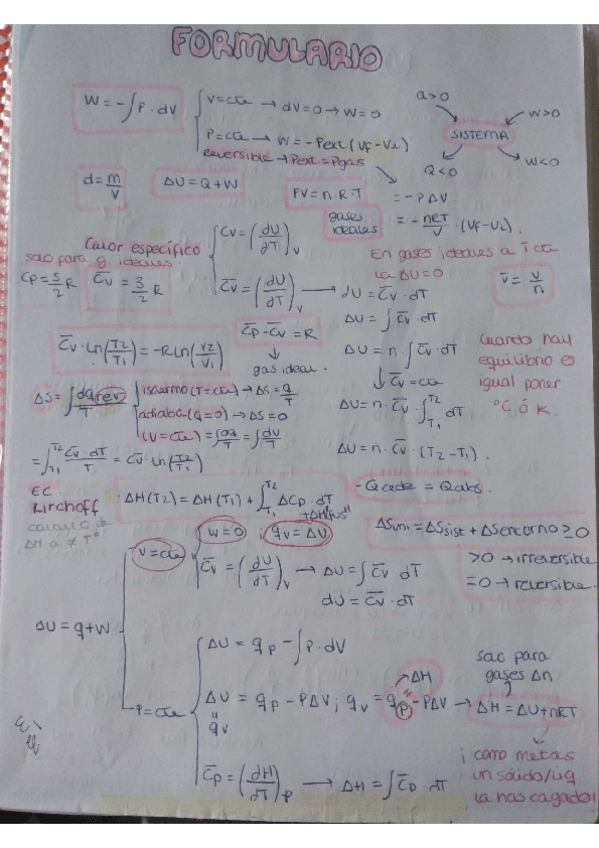 FORMULARIO
W = -∫P·dV
V=cte → dV=0 → W=0
P=cte → W = -Pext (Vf-Vi)
reversible → Pext = Pgas
Q>0
W>0
SISTEMA
Q<0
W<0
d = m/V
ΔU = Q+W
PV = n.R.T
= -PΔV
gases ideales
= -nRT/V · (Vf-Vi).
Calor específico
solo para g. ideales
Cp = 5/2 R
C̄v = 3/2 R
Cv = (dU/dT)v
C̄v = (dU/dT)v → dU = C̄v · dT
En gases ideales a T cte
la ΔU=0
v̄ = V/n
ΔU = ∫C̄v · dT
C̄v·Ln(T2/T1) = -R Ln(V2/V1)
C̄p-C̄v = R
↓
gas ideal.
ΔU = n·∫C̄v·dT
↓ C̄v = cte
ΔU = n·C̄v·∫T1T2 dT
ΔU = n·C̄v·(T2-T1).
Cuando hay
equilibrio es
igual poner
°C ó K.
ΔS = ∫dq rev/T
isotermo (T=cte) → ΔS = q/T
adiabát (Q=0) → ΔS=0
(V=cte) = ∫dq/T = ∫dU/T
= ∫T1T2 C̄v·dT/T = C̄v·Ln(T2/T1)
EC.
Kirchoff
ΔH a ≠ Tª
·ΔH(T2) = ΔH(T1) + ∫T1T2 ΔCp·dT
+ΔH"fus"
-Qcede = Qabs.
ΔSuni = ΔSsist + ΔSentorno ≥ 0
>0 → irreversible
=0 → reversible.
ΔU = q+W
V=cte
W=0 ; qv = ΔU
C̄v = (dU/dT)v → ΔU = ∫C̄v dT
dU = C̄v·dT
P=cte
ΔU = qp - ∫P·dV
ΔU = qp - PΔV ; qv = qp - PΔV → ΔH = ΔU + nRT
"
qv
ΔH
"
solo para
gases Δn
C̄p = (dH/dT)p → ΔH = ∫C̄p·dT
¡como metas
un sólido/líq
la has cagado!